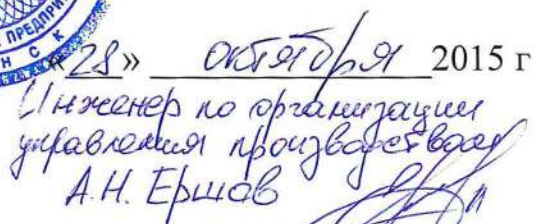 ПРЕДПРИ
НСК
«28» октября 2015 г
Инженер по организации
управления производством
А.Н. Ершов